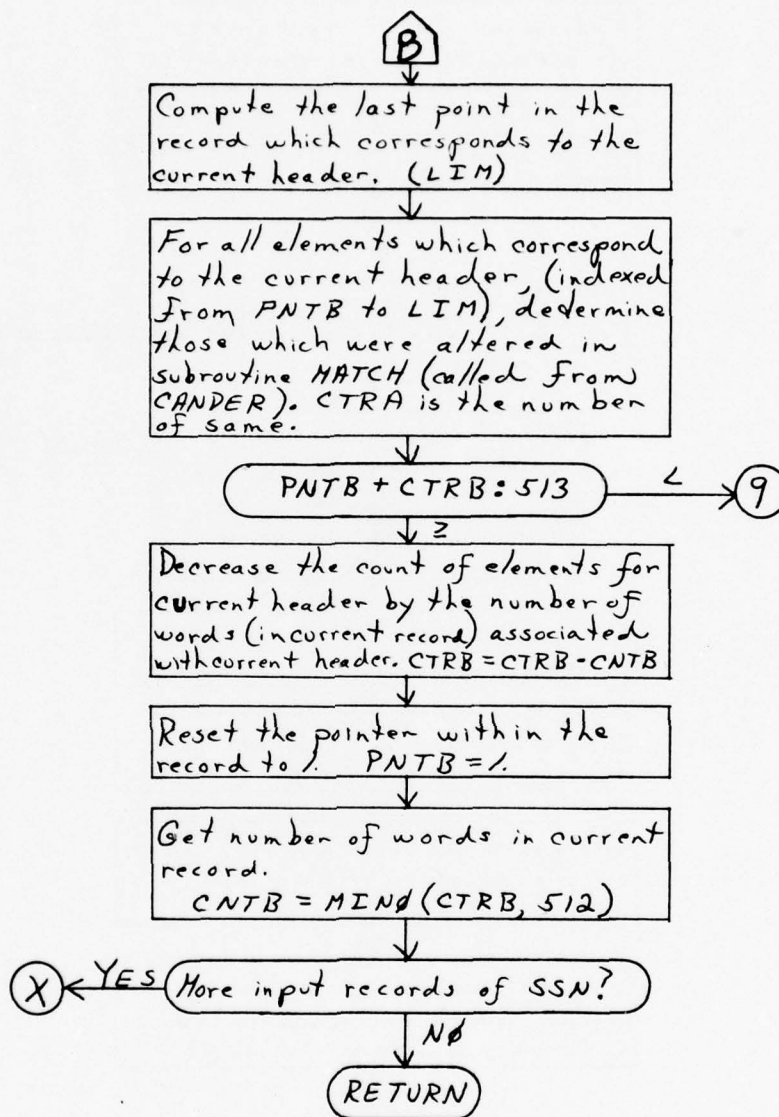 B
Compute the last point in the
record which corresponds to the
current header. (LIM)
For all elements which correspond
to the current header, (indexed
from PNTB to LIM), determine
those which were altered in
subroutine MATCH (called from
CANDER). CTRA is the number
of same.
PNTB + CTRB : 513
<
9
≥
Decrease the count of elements for
current header by the number of
words (in current record) associated
with current header. CTRB = CTRB - CNTB
Reset the pointer within the
record to 1. PNTB = 1.
Get number of words in current
record.
CNTB = MINØ (CTRB, 512)
X
YES
More input records of SSN?
NØ
RETURN